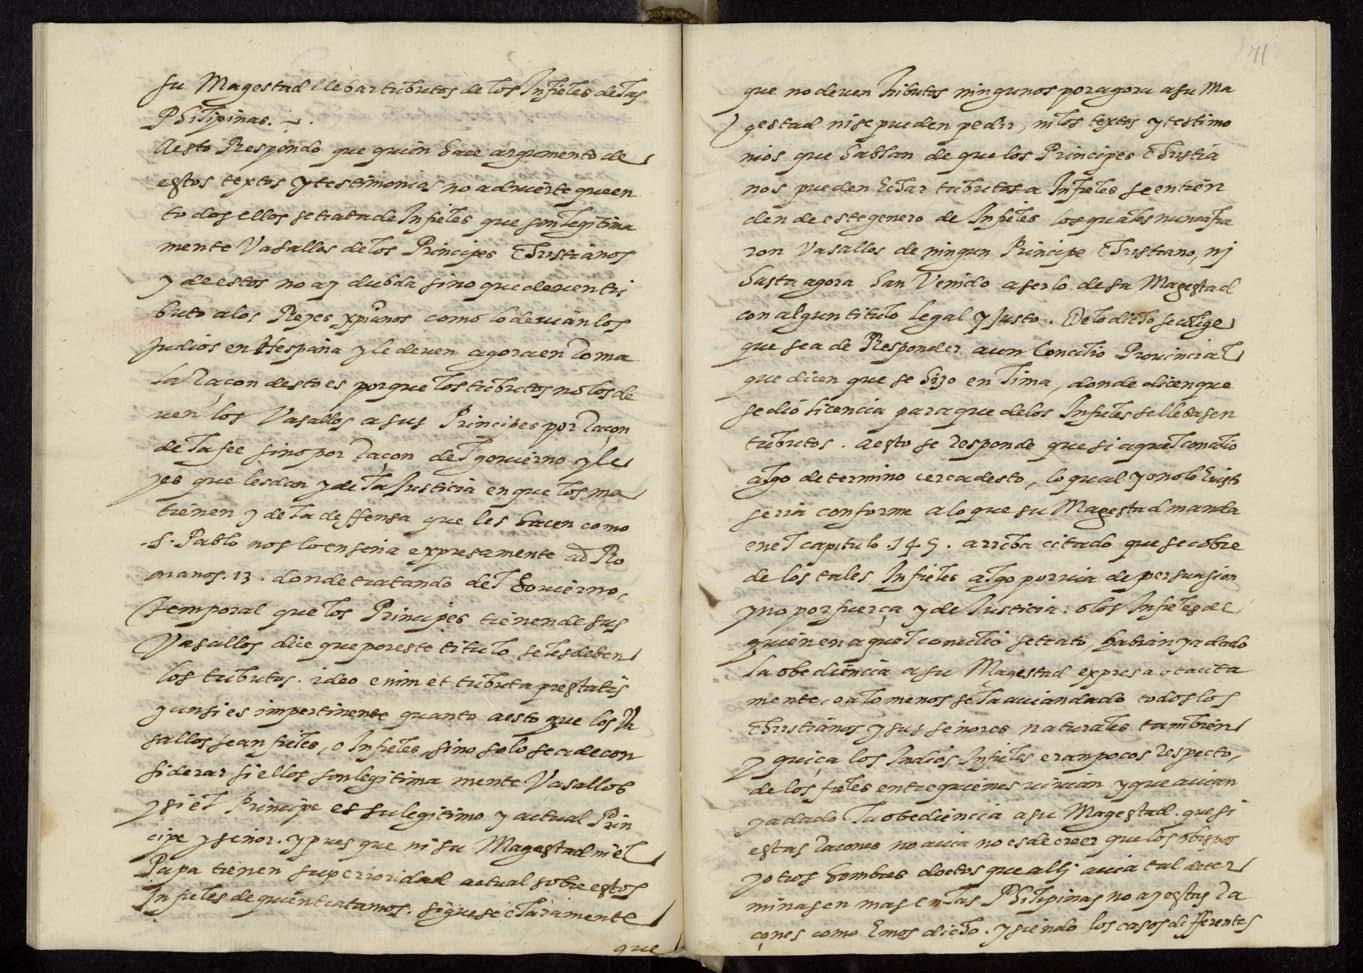 su Magestad llebar tributos de los Infieles de las
Philipinas.
Aesto Respondo que quien hace argumento de
estos textos y testimonios no aduierte que en
todos ellos se trata de Infieles que son legitima
mente Vasallos de los Principes Christianos
y de estos no ay dubda sino que deuen tri
buto a los Reyes xpianos como lo deuian los
Judios en Hespaña y le deuen agora en Roma
la Raçon desto es porque los tributos no los de
uen los Vasallos a sus Principes por Raçon
de la fee sino por Raçon del gouierno y le
yes que les dan y de la Justicia en que los ma
tienen y de la deffensa que les hacen como
S. Pablo nos lo enseña expresamente ad Ro
manos. 13. donde tratando del Gouierno
temporal que los Principes tienen de sus
Vasallos dice que por este titulo se les deben
los tributos. ideo enim et tributa prestatis
y ansi es impertinente quanto a esto que los Va
sallos sean fieles, o Infieles, sino solo se a de con
siderar si ellos son legitima mente Vasallos
y si el Principe es su legitimo y actual Prin
cipe y señor. y pues que ni su Magestad ni el
Papa tienen superioridad actual sobre estos
Infieles de quien tratamos. siguese claramente
que
71
que no deuen tributos ningunos por agora a su Ma
gestad ni se pueden pedir, ni los textos y testimo
nios que hablan de que los Principes Christia
nos pueden echar tributos a Infieles se entien
den de este genero de Infieles los quales nunca fue
ron Vasallos de ningun Principe Christiano, nj
hasta agora han Venido a serlo de su Magestad
con algun titulo legal y Justo. De lo dicho se colige
que se a de Responder a un Concilio Prouincial
que dicen que se hizo en Lima, donde dicen que
se dio licencia para que de los Infieles se llebasen
tributos. aesto se responde que si aquel concilio
algo determino cerca desto, lo qual yo no lo
seria conforme a lo que su Magestad manda
en el capitulo 145. arriba citado que se cobre
de los tales Infieles algo por via de persuasion
y no por fuerça y de Justicia: o los Infieles de
quien en aquel concilio se trato, habian ya dado
la obediencia a su Magestad expresa o tacita
mente, o a lo menos se la auian dado todos los
Christianos y sus señores naturales tambien
y quiça los Indios Infieles eran pocos respecto
de los fieles entre quienes uiuian y que auian
ya dado la obediencia a su Magestad. que si
estas raçones no auia no es de creer que los obispos
y otros hombres doctos que allj auia tal deter
minasen mas en las Philipinas no ay estas ra
çones como hemos dicho. y siendo los casos differentes